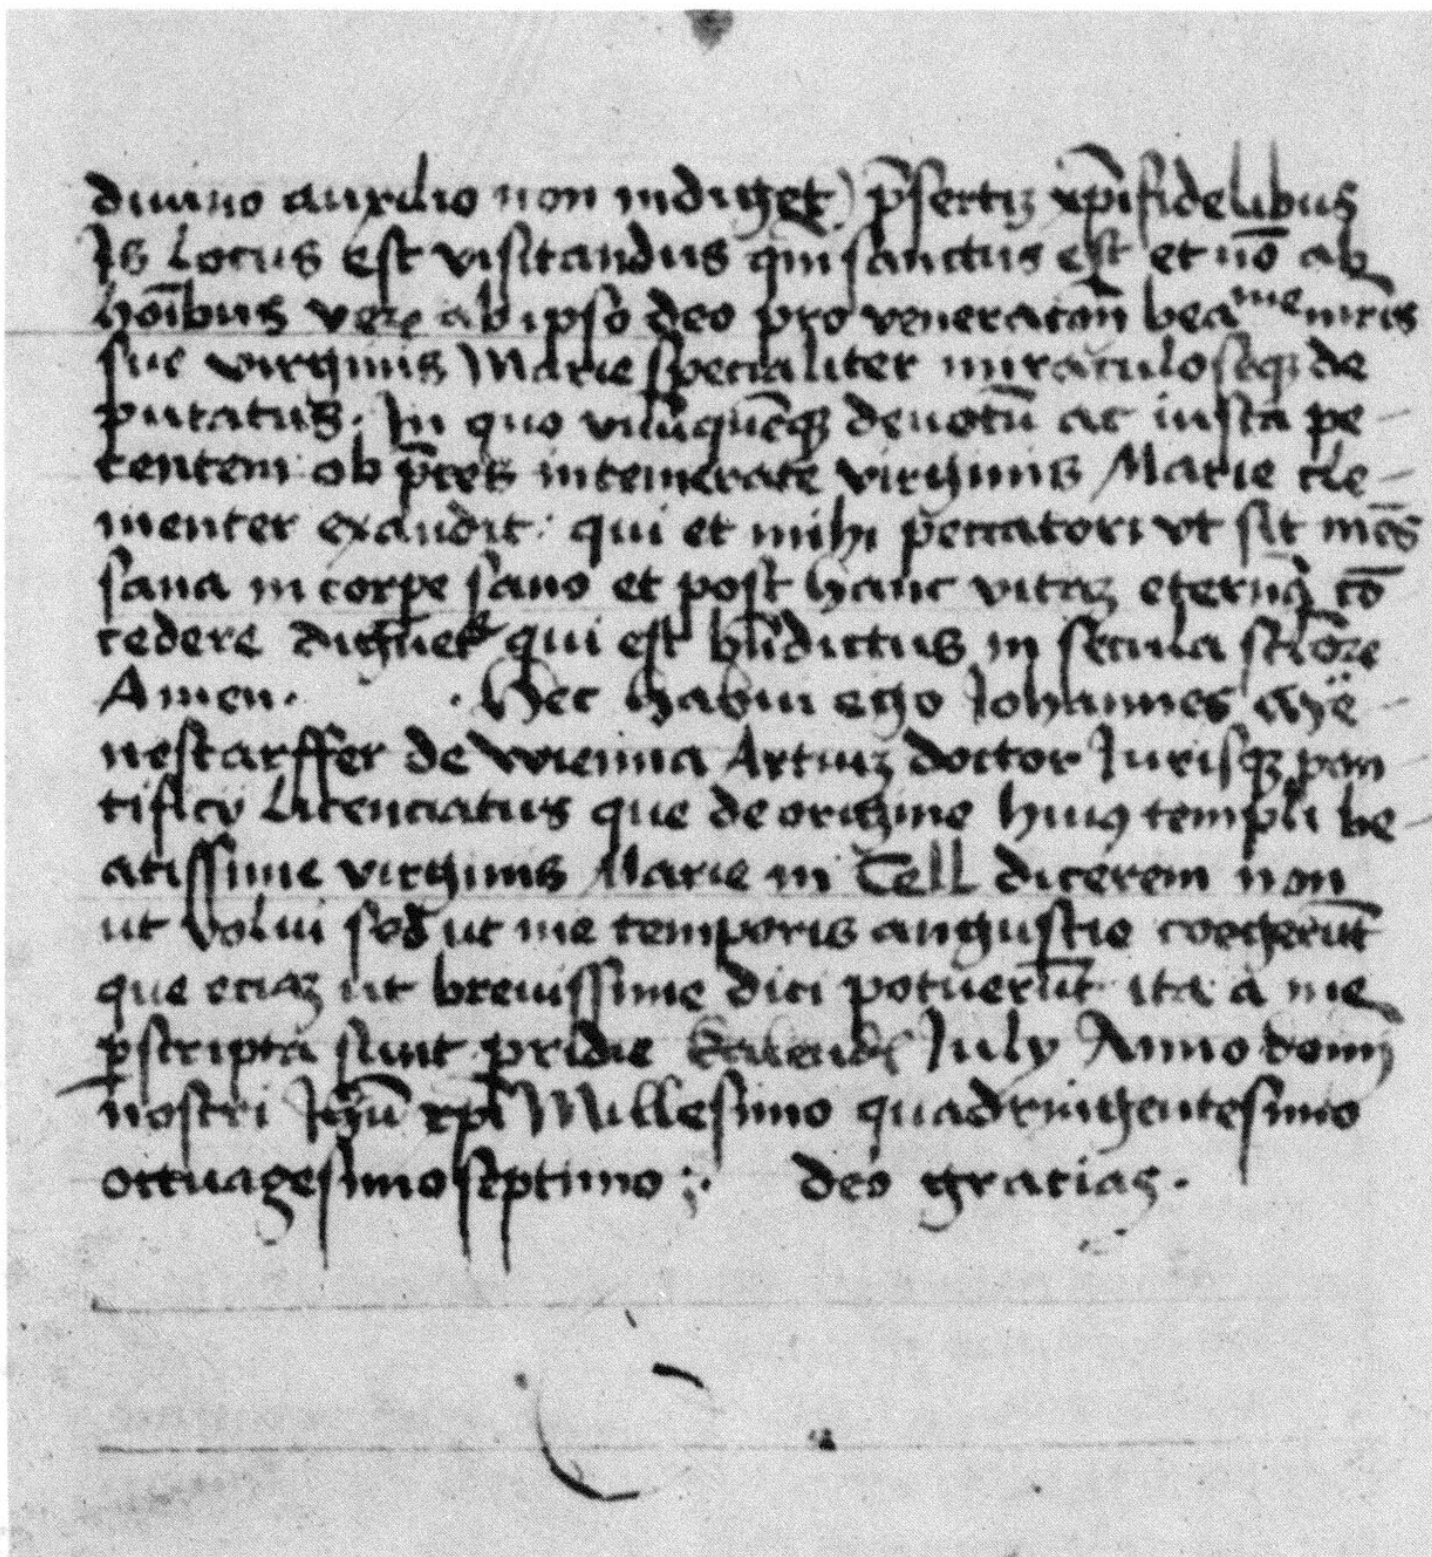 diuino auxilio non indiget) p̄sertiȝ xp̄ifidelibus
Is Locus est visitandus qm̄ sanctus est et nō ab
hoı̄bus veꝝ ab ipso deo pro veneratōn bea^me mr̄is
sue virginis Marie specialiter miraculoseqȝ de
putatus. In quo vnūquēqȝ deuotū ac iusta pe-
tentem ob p̄ces intemerate virginis Marie cle-
menter exaudit: qui et mihi peccatori vt sit mēs
sana in corpe sano et post hanc vitaȝ eternā cō
cedere dignet qui est bn̄dictus in secula sc̄loꝝ
Amen. . Hec habui ego Johannes aÿe-
nestarffer de wienna Artiuȝ doctor Jurisqȝ pon-
tificÿ Licenciatus que de origine huiꝯ templi be-
atissime virginis Marie in Cell dicerem non
ut volui sed ut me temporis angustie coegerūt
que eciaȝ ut breuissime dici potuerūt ita a me
p̄scripta sunt pridie Kalend July Anno domī
nostri Jhū xp̄i Millesimo quadringentesimo
octuagesimo septimo ;. deo gracias.